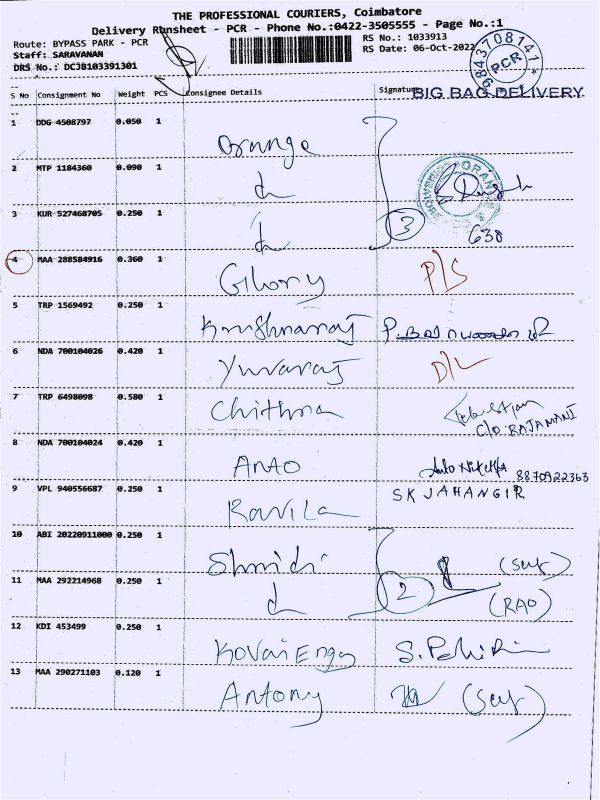 THE PROFESSIONAL COURIERS, Coimbatore
Delivery Runsheet - PCR - Phone No.:0422-3505555 - Page No.:1
Route: BYPASS PARK - PCR
RS No.: 1033913
Staff: SARAVANAN
RS Date: 06-Oct-2022
DRS No.: DCJB103391301
9843708141
PCR
S No Consignment No Weight PCS Consignee Details Signature
BIG BAG DELIVERY
1 DDG 4508797 0.050 1 Orange
2 MTP 1184360 0.090 1 d
3 KUR 527468705 0.250 1 d 3 638
4 MAA 288584916 0.360 1 Glory P/S
5 TRP 1569492 0.250 1 Krishnaraj
6 NDA 700104026 0.420 1 Yuvaraj D/L
7 TRP 6498098 0.580 1 Chithra
C/O RAJAMANI
8 NDA 700104024 0.420 1 Anto 8870922363
9 VPL 940556687 0.250 1 Kavila SK JAHANGIR
10 ABI 20220911000 0.250 1 (Self)
11 MAA 292214968 0.250 1 d 2 (RAO)
12 KDI 453499 0.250 1 Kovai Engg
13 MAA 290271103 0.120 1 Antony (Self)